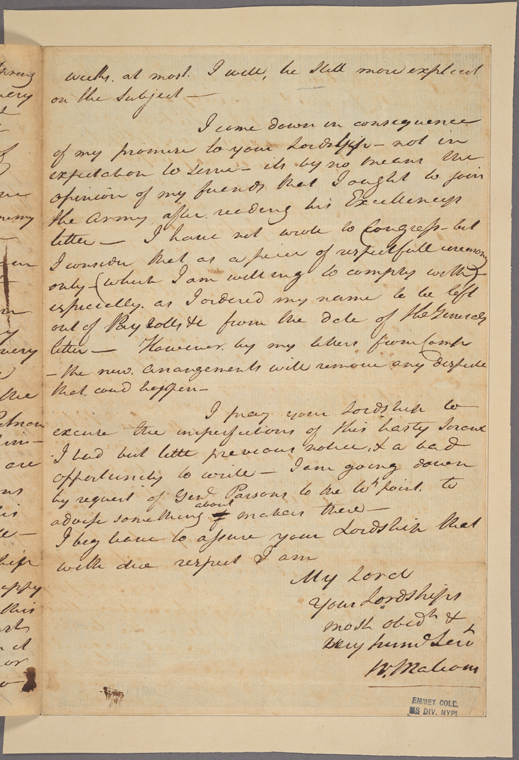 weeks. at most. I will, be still more explicit
on the subject —
I come down in consequence
of my promise to your Lordship — not in
expectation to serve — its by no means the
opinion of my friends that I ought to join
the Army after reading his Excellencys
letter — I have not wrote to Congress — but
I consider that as a piece of respectfull ceremony
only (which I am willing to comply with)
especially. as I ordered my name to be left
out of Pay rolls &c from the date of the Generals
letter — However by my letters from Camp
— the new arrangements will remove any dispute
that coud happen —
I pray your Lordship to
excuse the imperfections of this hasty
I had but little previous notice, & a bad
opportunity to write — I am going down
by request of Genl. Parsons to the Wt. point. to
advise something about matters there —
I beg leave to assure your Lordship that
with due respect I am
My Lord
Your Lordships
most obedt. &
very humb Servt
W. Malcom
EMMET COLL.
MS DIV. NYPL